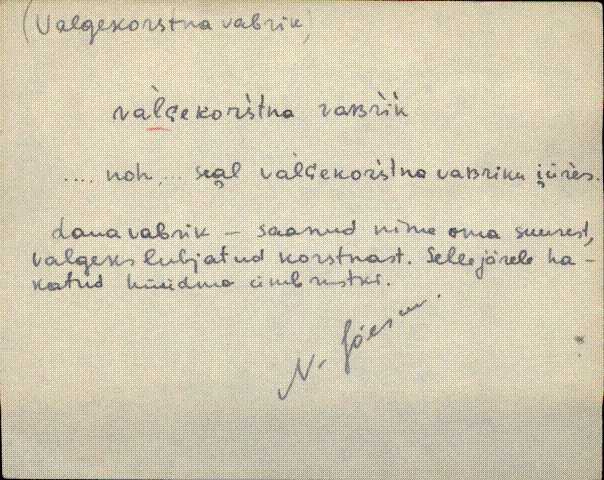 (Valgekorstna vabrik)
vàl̀G̀ekoŕstna vaʙŕik
.... noh ... seal vàl̀G̀ekoŕstna vaʙŕiku jūŕes.
Laua vabrik – saanud nime oma suurest,
valgeks lubjatud korstnast. Sellejärele ha-
katud hüüdma ümbrustki.
N. Jõesuu.